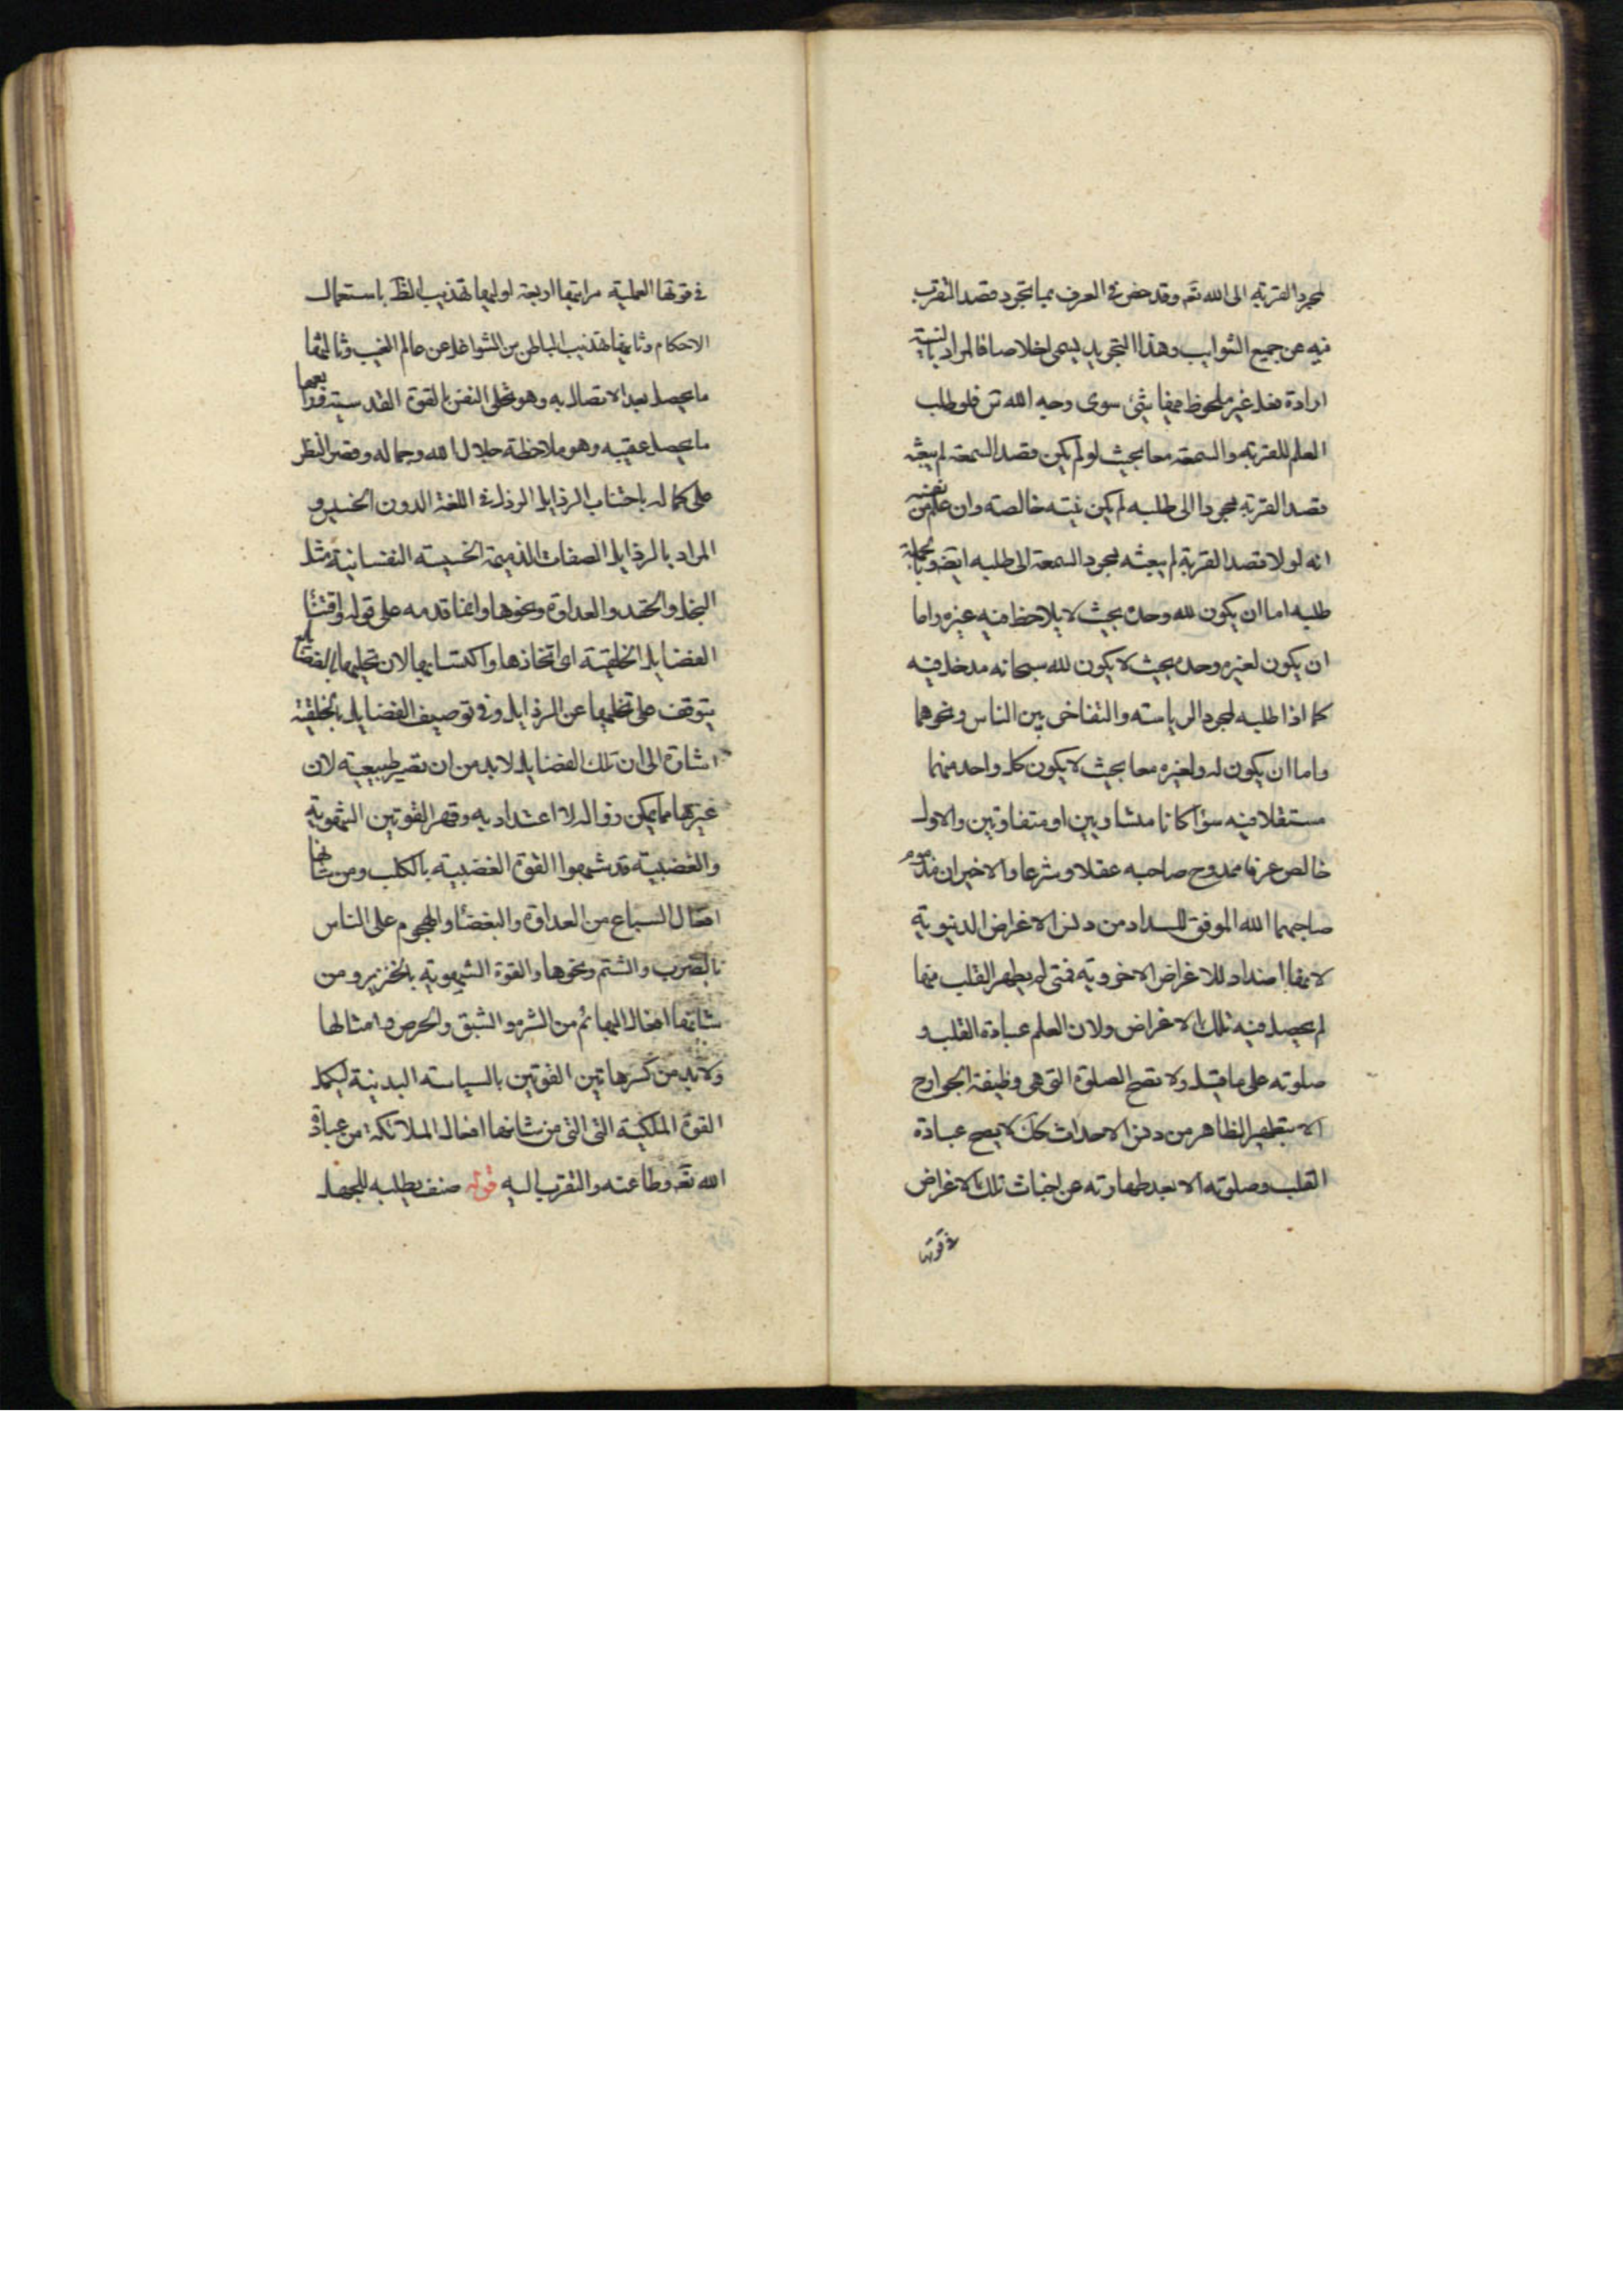 لمجرد القربة الى الله تعم وقد خص في العرف بما تجرد قصد التقرب
فيه عن جميع الشوايب وهذا التجريد يسمى اخلاصا فالمراد بالنية
ارادة فعل غير ملحوظ معها شئ سوى وجه الله تع فلو طلب
العلم للقربة والسمعة معا بحيث لو لم يكن قصد السمعة لم يبعثه
قصد القربة مجردا الى طلبه لم يكن نيته خالصة وان علم من نفسه
انه لولا قصد القربة لم يبعثه مجرد السمعة الى طلبه ايضا وبالجملة
طلبه اما ان يكون لله وحده بحيث لا يلاحظ فيه غيره واما
ان يكون لغيره وحده بحيث لا يكون لله سبحانه مدخل فيه
كما اذا طلبه لمجرد الرياسته والتفاخر بين الناس ونحوهما
واما ان يكون له ولغيره معا بحيث لا يكون كل واحد منهما
مستقلا فيه سوآ كانا متساويين او متفاوتين والاول
خالص عرفا ممدوح صاحبه عقلا وشرعا والاخيران مذموم
صاحبهما الله الموفق للسداد من دنس الاغراض الدنيوية
لانها اضداد للاغراض الاخروية فمتى لم يطهر القلب منها
لم يحصل فيه تلك الاغراض ولان العلم عبادة القلب و
صلوته على ما قيل ولا تصح الصلوة التي هي وظيفة الجوارح
الا بتطهير الظاهر من دنس الاحداث كك لا يصح عبادة
القلب وصلوته الا بعد طهارته عن اخباث تلك الاغراض
في قوتها
في قوتها العملية مراتبها اربعة اوليها تهذيب الظ باستعمال
الاحكام وثانيها تهذيب الباطن من الشواغل عن عالم الغيب وثالثها
ما يحصل بعد الاتصال به وهو تحلى النفس بالقوة القدسية ورابعها
ما يحصل عقيبه وهو ملاحظة جلال الله وجماله وقصر النظر
على كماله باجتناب الرذايل الرذل في اللغة الدون الخسيس و
المراد بالرذايل الصفات الذميمة الخسيسة النفسانية مثل
البخل والحقد والعداوة ونحوها وانما قدمه على قوله واقتنآ
الفضايل الخلقية اى اتخاذها واكتسابها لان تحليها بالفضايل
يتوقف على تخليها عن الرذايل وفي توصيف الفضايل بالخلقية
اشارة الى ان تلك الفضايل لابد من ان تصير طبيعية لان
غيرها مما يمكن زواله لا اعتداد به وقهر القوتين الشهوية
والغضبية قد شبهوا القوة الغضبية بالكلب ومن شانها
افعال السباع من العداوة والبغضآ والهجوم على الناس
بالضرب والشتم ونحوها والقوة الشهوية بالخنزير ومن
شانها افعال البهائم من الشره والشبق والحرص وامثالها
ولابد من كسر هاتين القوتين بالسياسته البدنية ليكمل
القوة الملكية التي التي من شانها افعال الملائكة من عبادة
الله تعم وطاعته والتقرب اليه قوله صنف يطلبه للجهل